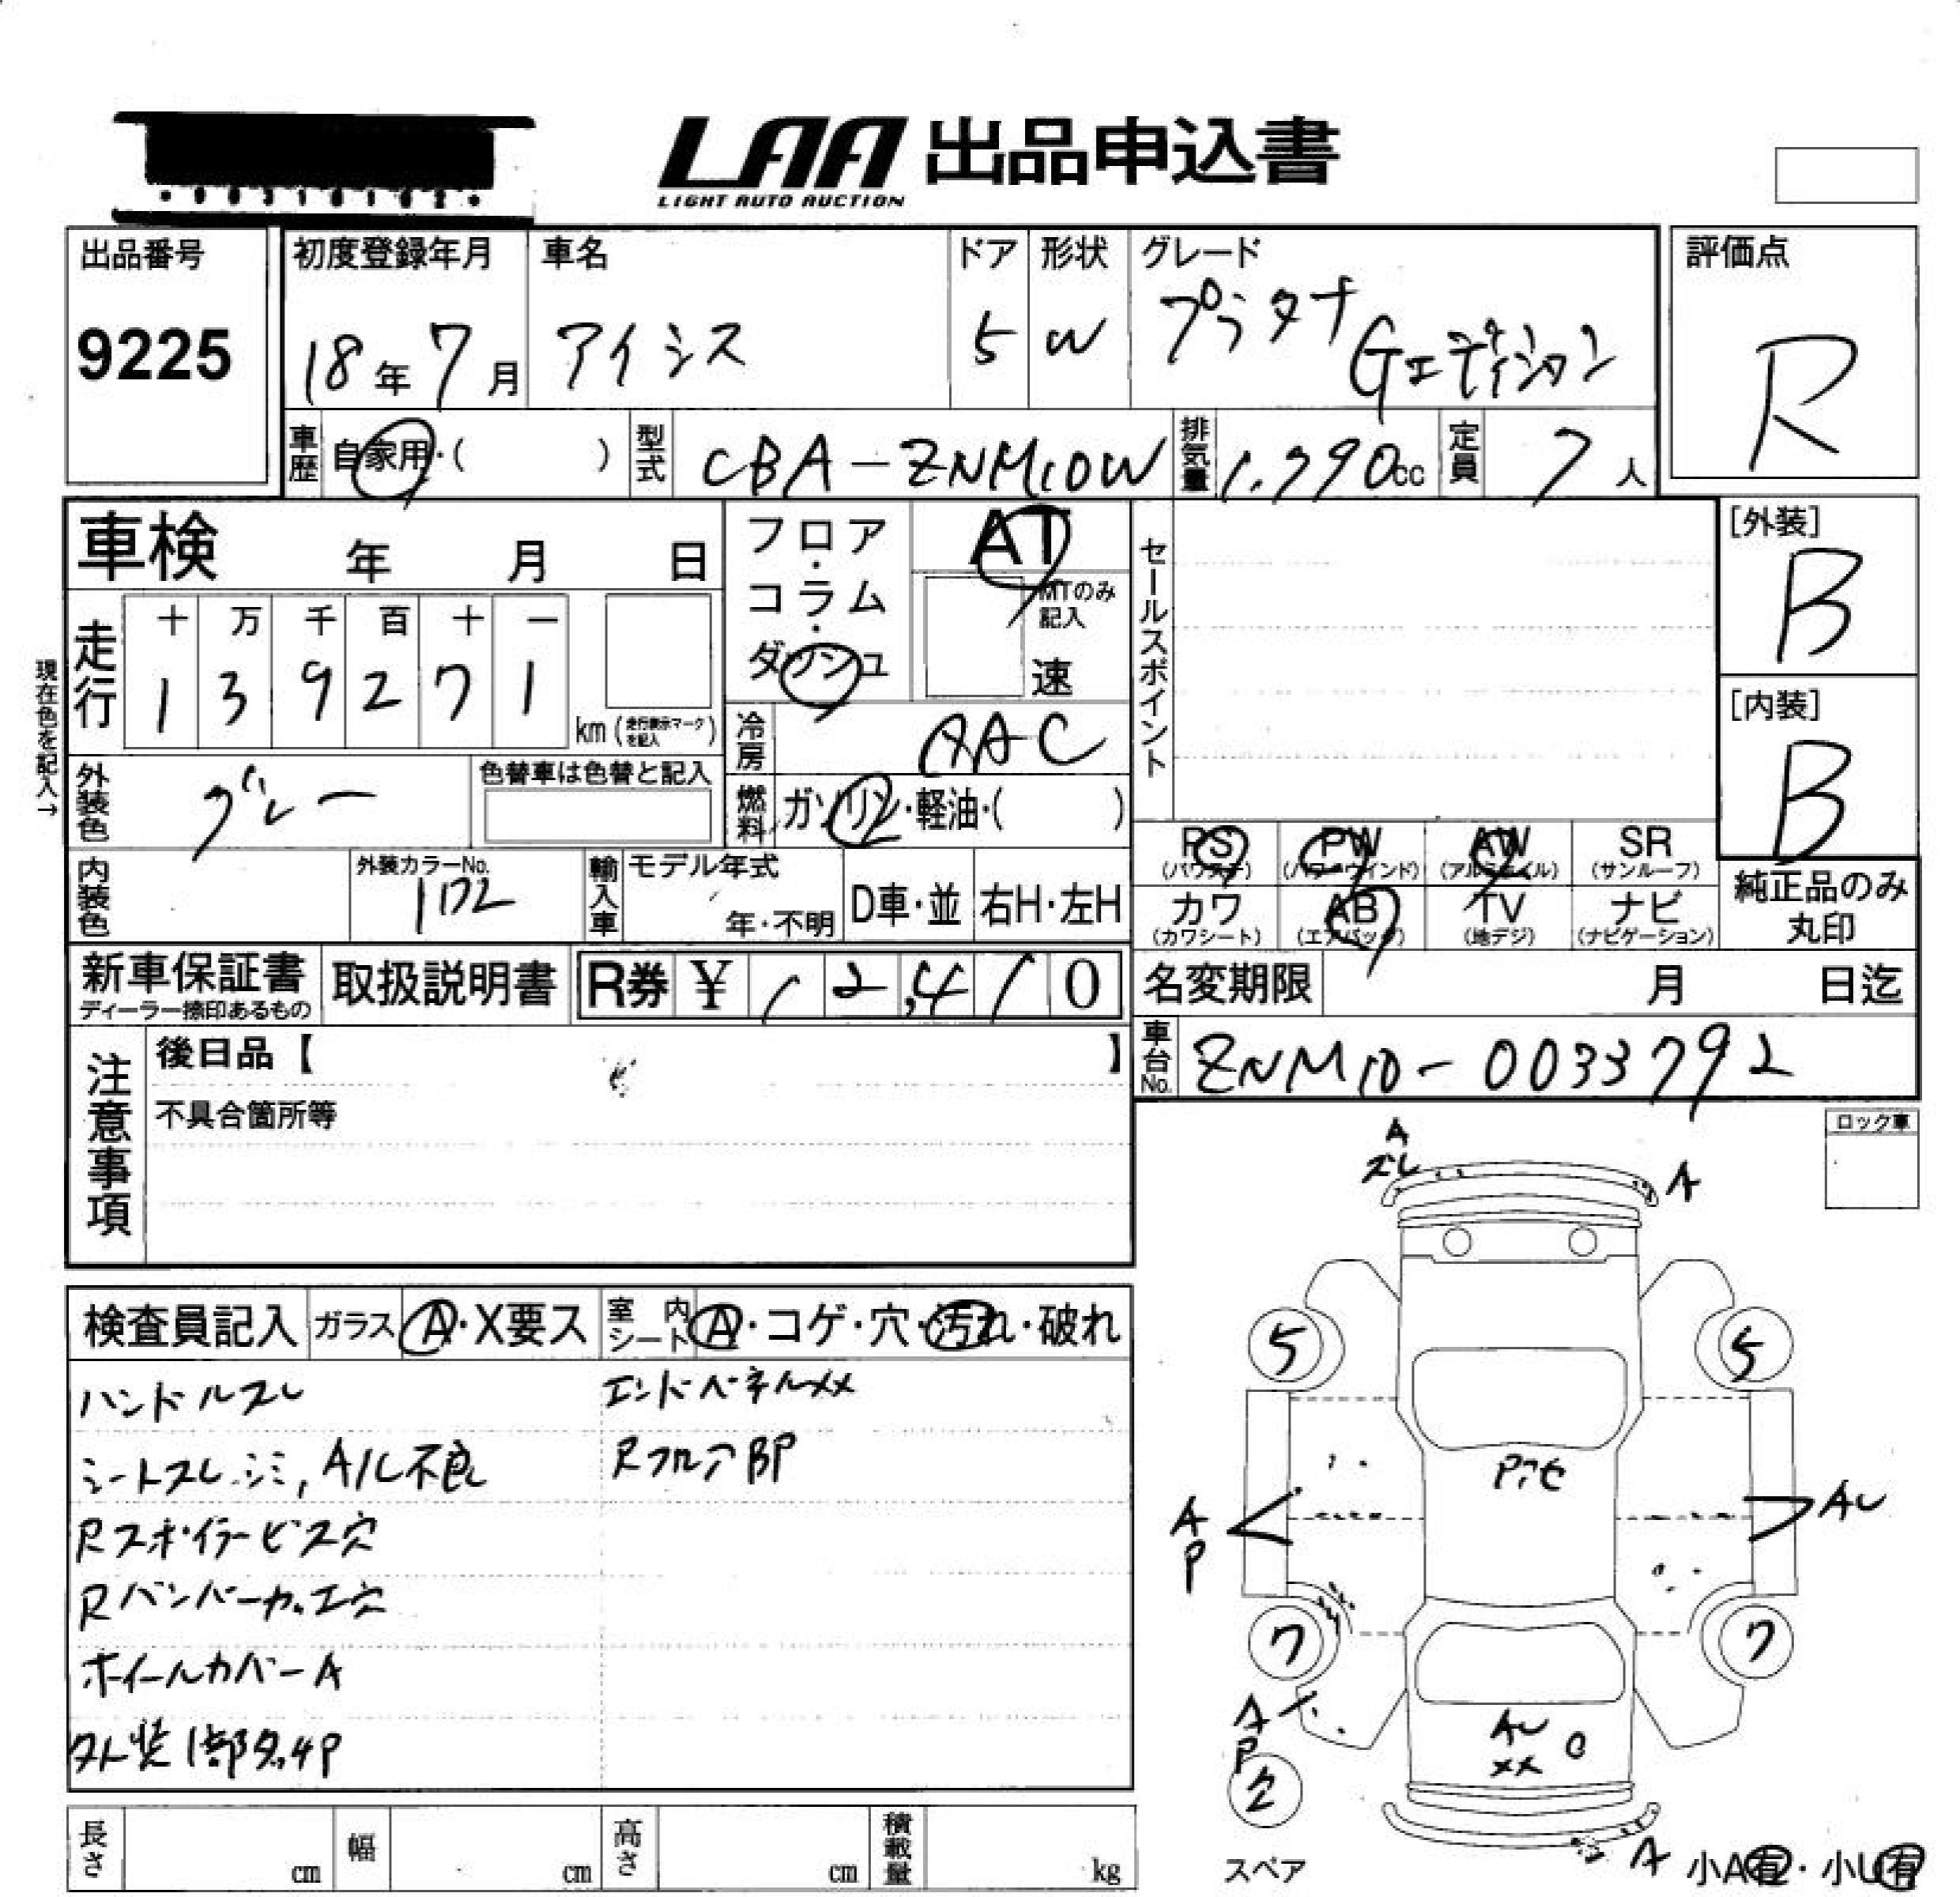 LAA 出品申込書
LIGHT AUTO AUCTION
出品番号
9225
初度登録年月
18年7月
車名
アイシス
ドア
5
形状
W
グレード
プラタナ
Gエディション
評価点
R
車歴 自家用・( )
型式 CBA-ZNM10W
排気量 1.790cc
定員 7人
車検 年 月 日
フロア・コラム・ダッシュ
AT
MTのみ記入
速
セールスポイント
[外装]
B
[内装]
B
現在色を記入→
走行
十 万 千 百 十 一
1 3 9 2 7 1
km (走行表示マークを記入)
冷房 AAC
外装色 グレー
色替車は色替と記入
燃料 ガソリン・軽油・( )
PS
(パワステ)
PW
(パワーウインド)
AW
(アルミホイル)
SR
(サンルーフ)
内装色
外装カラーNo.
1D2
輸入車
モデル年式
年・不明
D車・並
右H・左H
カワ
(カワシート)
AB
(エアバッグ)
TV
(地デジ)
ナビ
(ナビゲーション)
純正品のみ丸印
新車保証書
ディーラー捺印あるもの
取扱説明書
R券 ¥ 12,410
名変期限 月 日迄
注意事項
後日品【 】
不具合箇所等
車台No. ZNM10-0033792
ロック車
検査員記入 ガラス A・X要ス 室内シート A・コゲ・穴・汚れ・破れ
ハンドルスレ
シートスレ.シミ, A/L不良
Rスポイラービス穴
Rバンパー加工穴
ホイールカバーA
外装1部タッチP
エンドパネルXX
RフロアBP
A
スレ
A
5
5
A
P
AU
7
7
A
P
AU
XX
A
スペア
小A有・小U有
長さ cm
幅 cm
高さ cm
積載量 kg